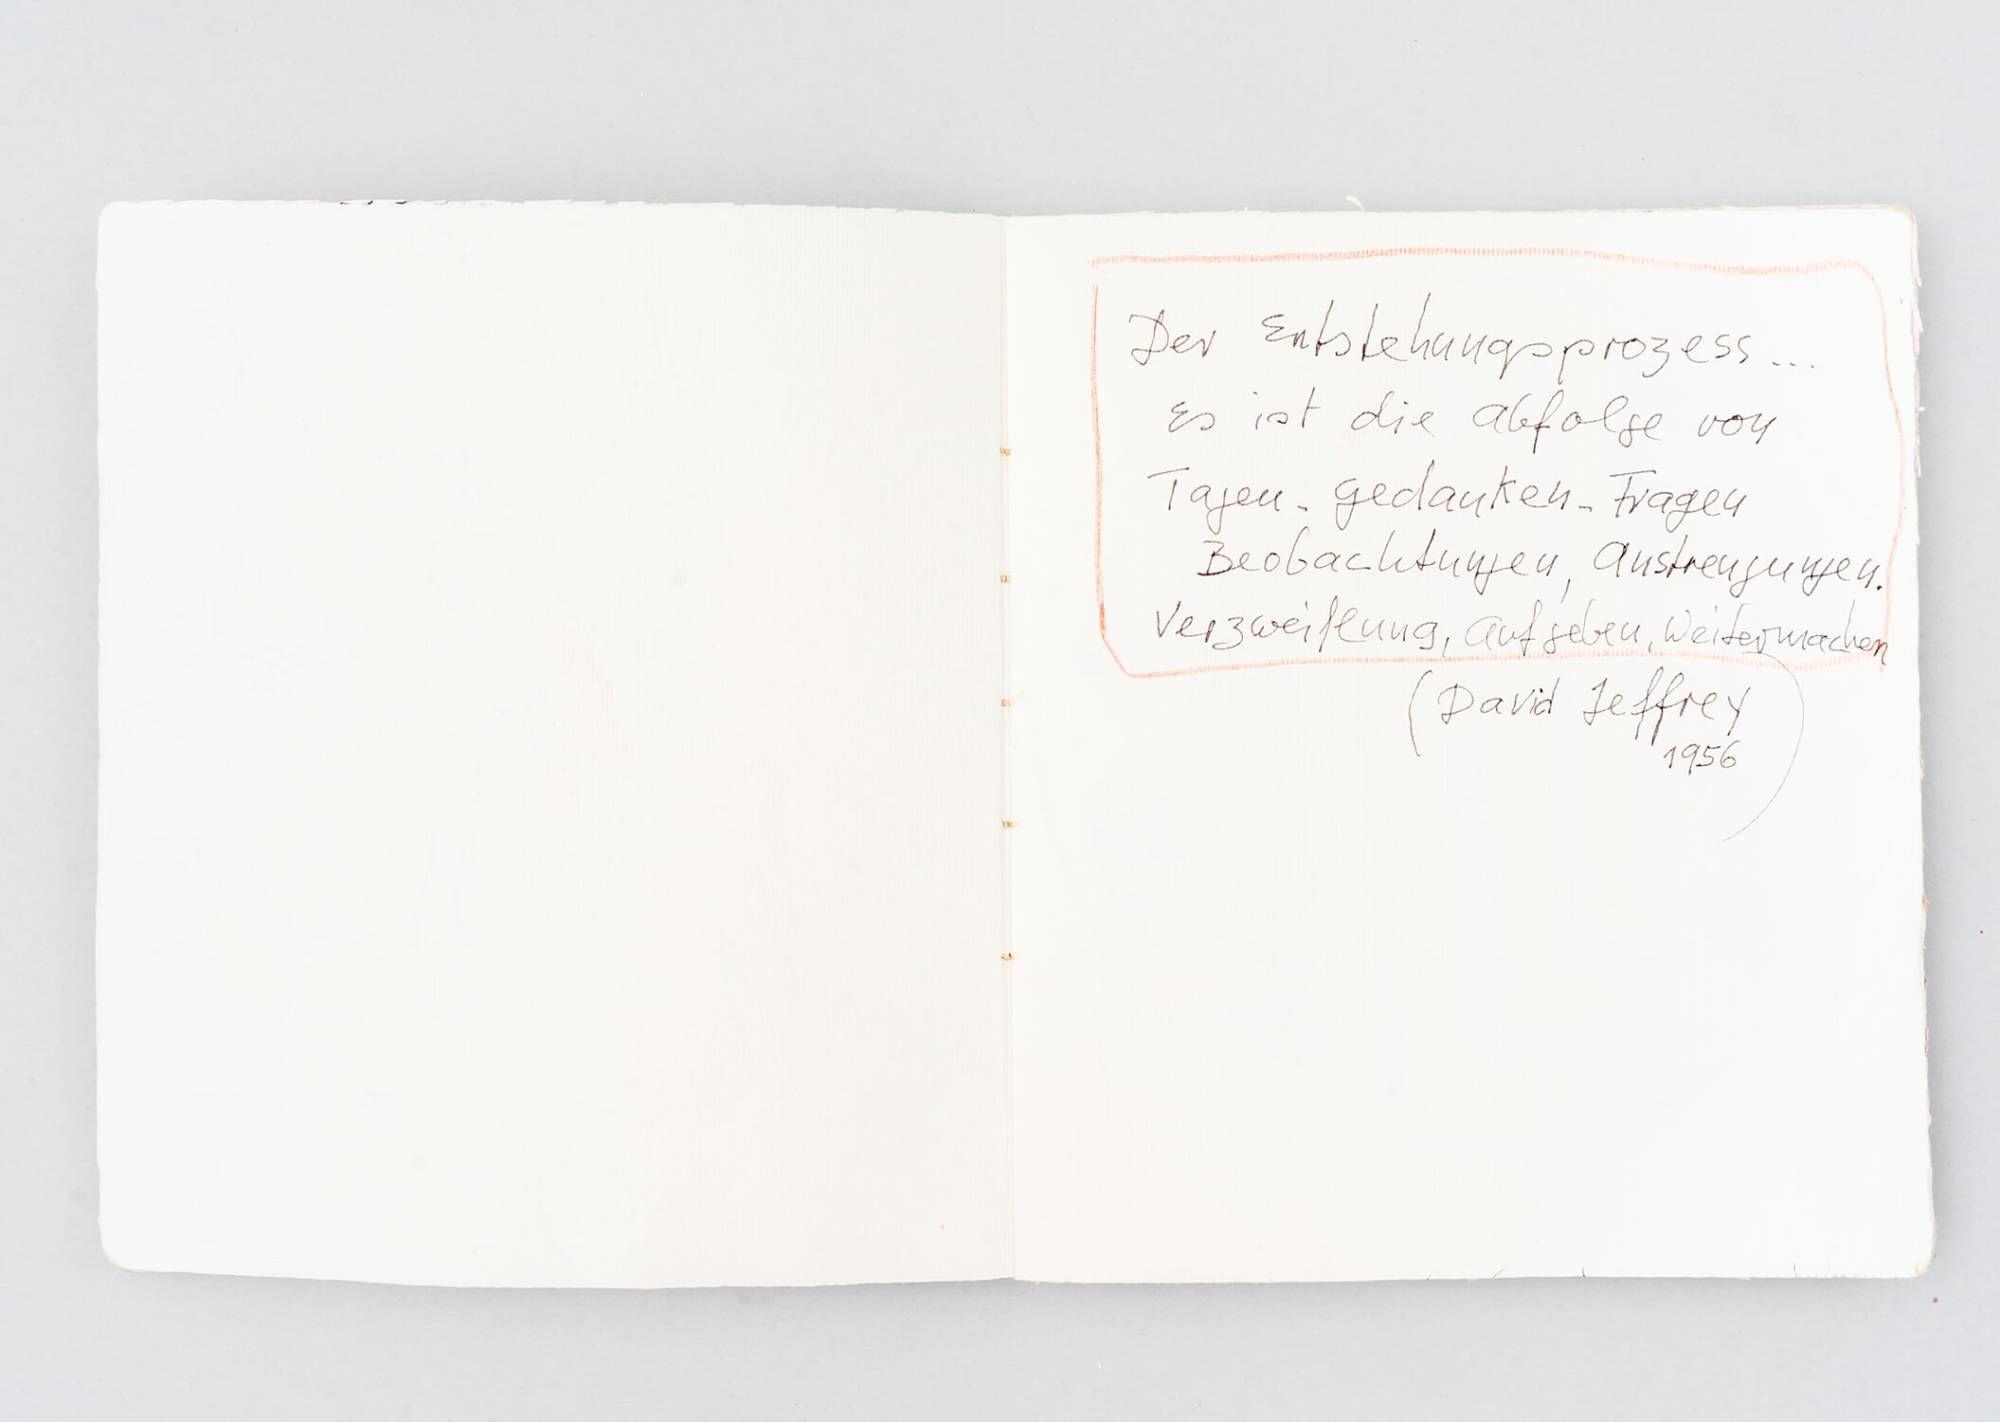 Der Entstehungsprozess...
Es ist die Abfolge von
Tagen - Gedanken - Fragen
Beobachtungen, Anstrengungen.
Verzweiflung, Aufgeben, Weitermachen
(David Jeffrey
1956)